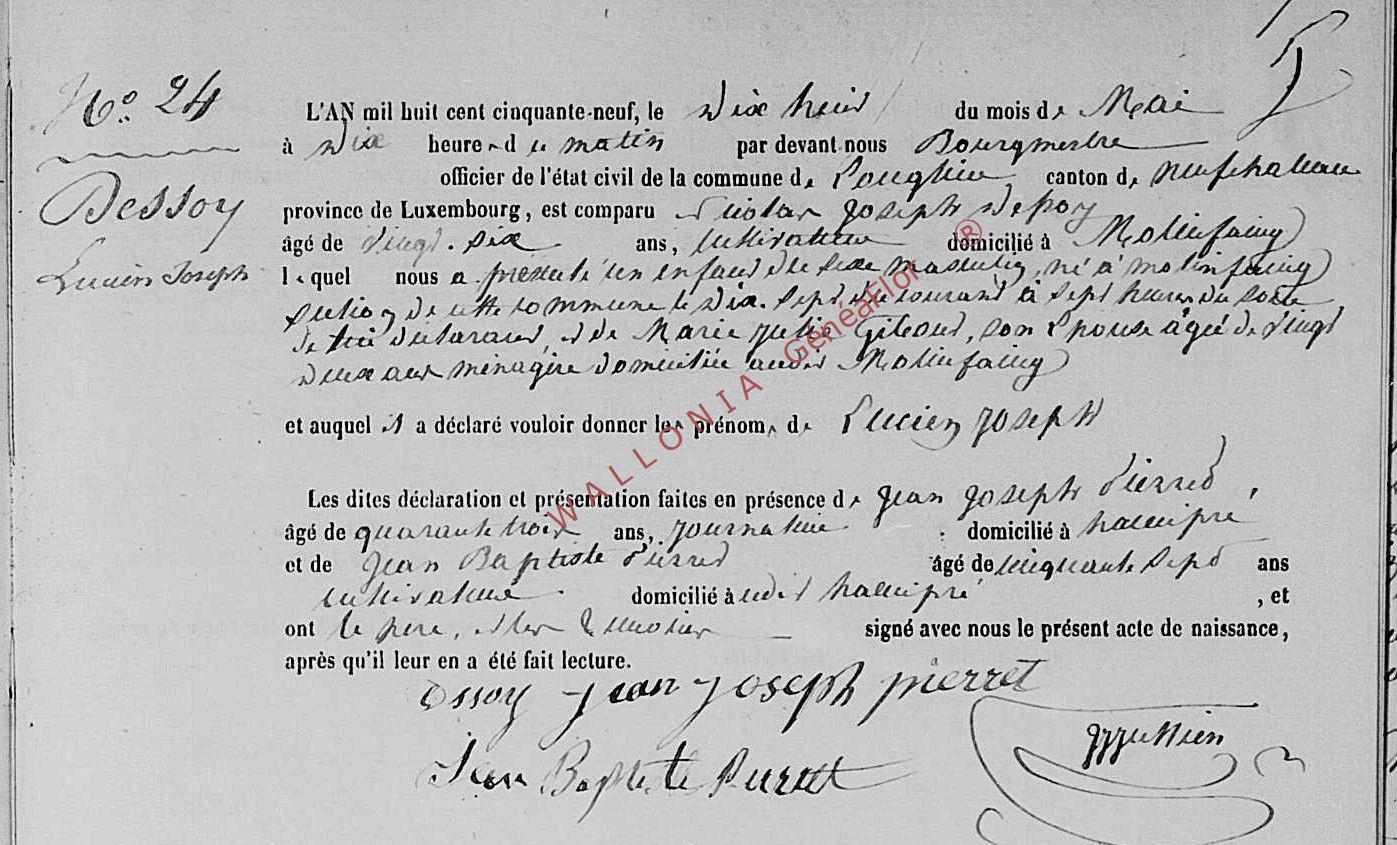 No. 24
Dessoy
Lucien Joseph
L'AN mil huit cent cinquante-neuf, le dix huit du mois de Mai
à Dix heures du matin par devant nous Bourgmestre
officier de l'état civil de la commune de Longlier canton de neufchateau
province de Luxembourg, est comparu Nicolas Joseph Dessoy
âgé de vingt-six ans, cultivateur domicilié à Molinfaing
lequel nous a présenté un enfant du sexe masculin, né à molinfaing
section de cette commune le dix-sept du courant à sept heures du soir
de lui déclarant, et de Marie Julie son épouse âgée de vingt
deux ans ménagère domiciliée audit Molinfaing
et auquel il a déclaré vouloir donner les prénoms de Lucien Joseph
Les dites déclaration et présentation faites en présence de Jean Joseph Pierret,
âgé de quarante trois ans, journalier domicilié à hamipré
et de Jean Baptiste Pierret âgé de cinquante sept ans
cultivateur domicilié à udit hamipré, et
ont le père, et les témoins signé avec nous le présent acte de naissance,
après qu'il leur en a été fait lecture.
Dssoy Jean Joseph pierret
Jean Baptiste Pierret
WALLONIA GénéaFlor ®